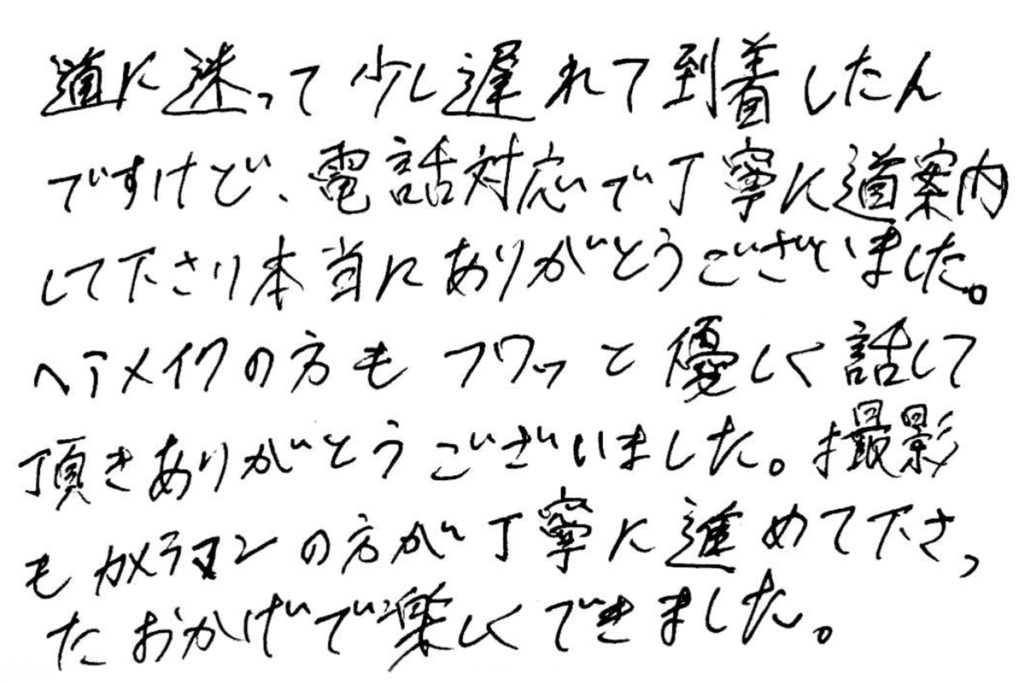 道に迷って少し遅れて到着したん
ですけど、電話対応で丁寧に道案内
して下さり本当にありがとうございました。
ヘアメイクの方もフワッと優しく話して
頂きありがとうございました。撮影
もカメラマンの方が丁寧に進めて下さっ
たおかげで楽しくできました。